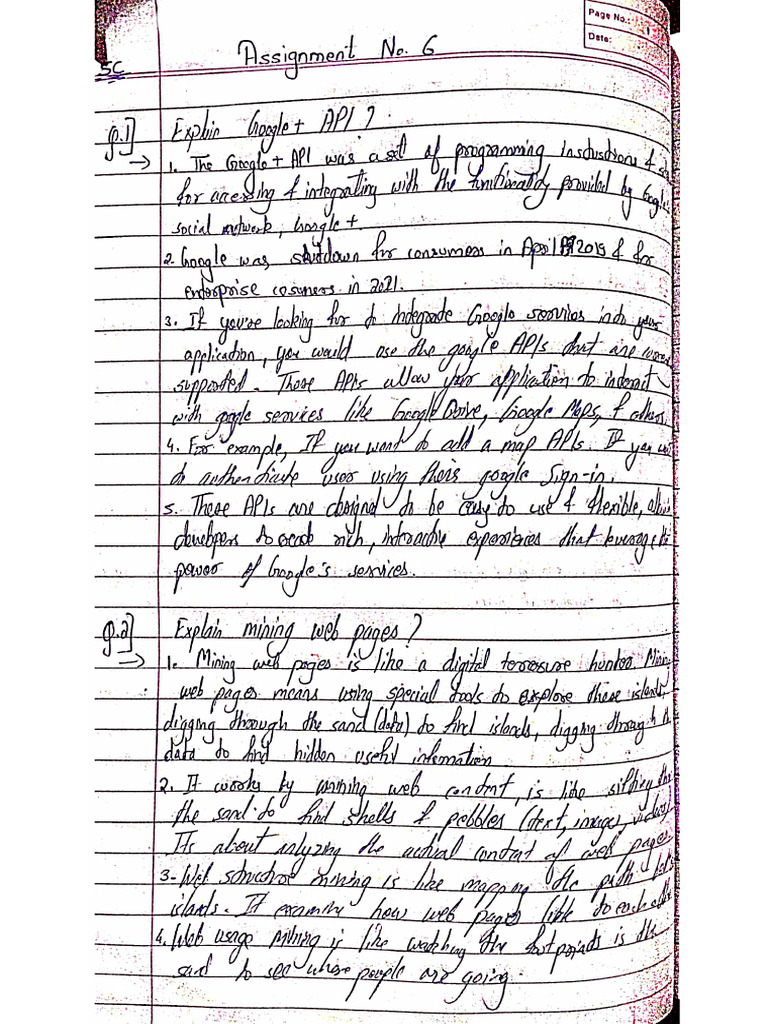 Page No.: 1
Date:
Assignment No. 6
SC
Q.1] Explain Google+ API?
→ 1. The Google+ API was a set of programming instructions &
for accessing & integrating with the functionality provided by Google
social network, Google+
2. Google was shutdown for consumers in April 2019 & for
enterprise cosumers in 2021.
3. If you're looking for to integrate Google services into your
application, you would use the google APIs that are
supported. These APIs allow your application to interact
with google services like Google Drive, Google Maps, & others.
4. For example, If you want to add a map APIs. If you
to authenticate user using google Sign-in.
5. These APIs are designed to be easy to use & flexible,
developers to create rich, interactive experiences that leverage the
power of Google's services.
Q.2] Explain mining web pages?
→ 1. Mining web pages is like a digital hunter. Mining
web pages means using special tools to explore these islands,
digging through the sand (data) to find islands, digging through
data to find hidden useful information
2. It works by mining web content, is like sifting
the sand to find shells & pebbles (text, images, videos)
Its about anlyzing the actual content of web pages.
3. Web mining is like mapping the path
islands. It examine how web pages link to each other
4. Web usage mining is like watching the footprints is the
sand to see where people are going.